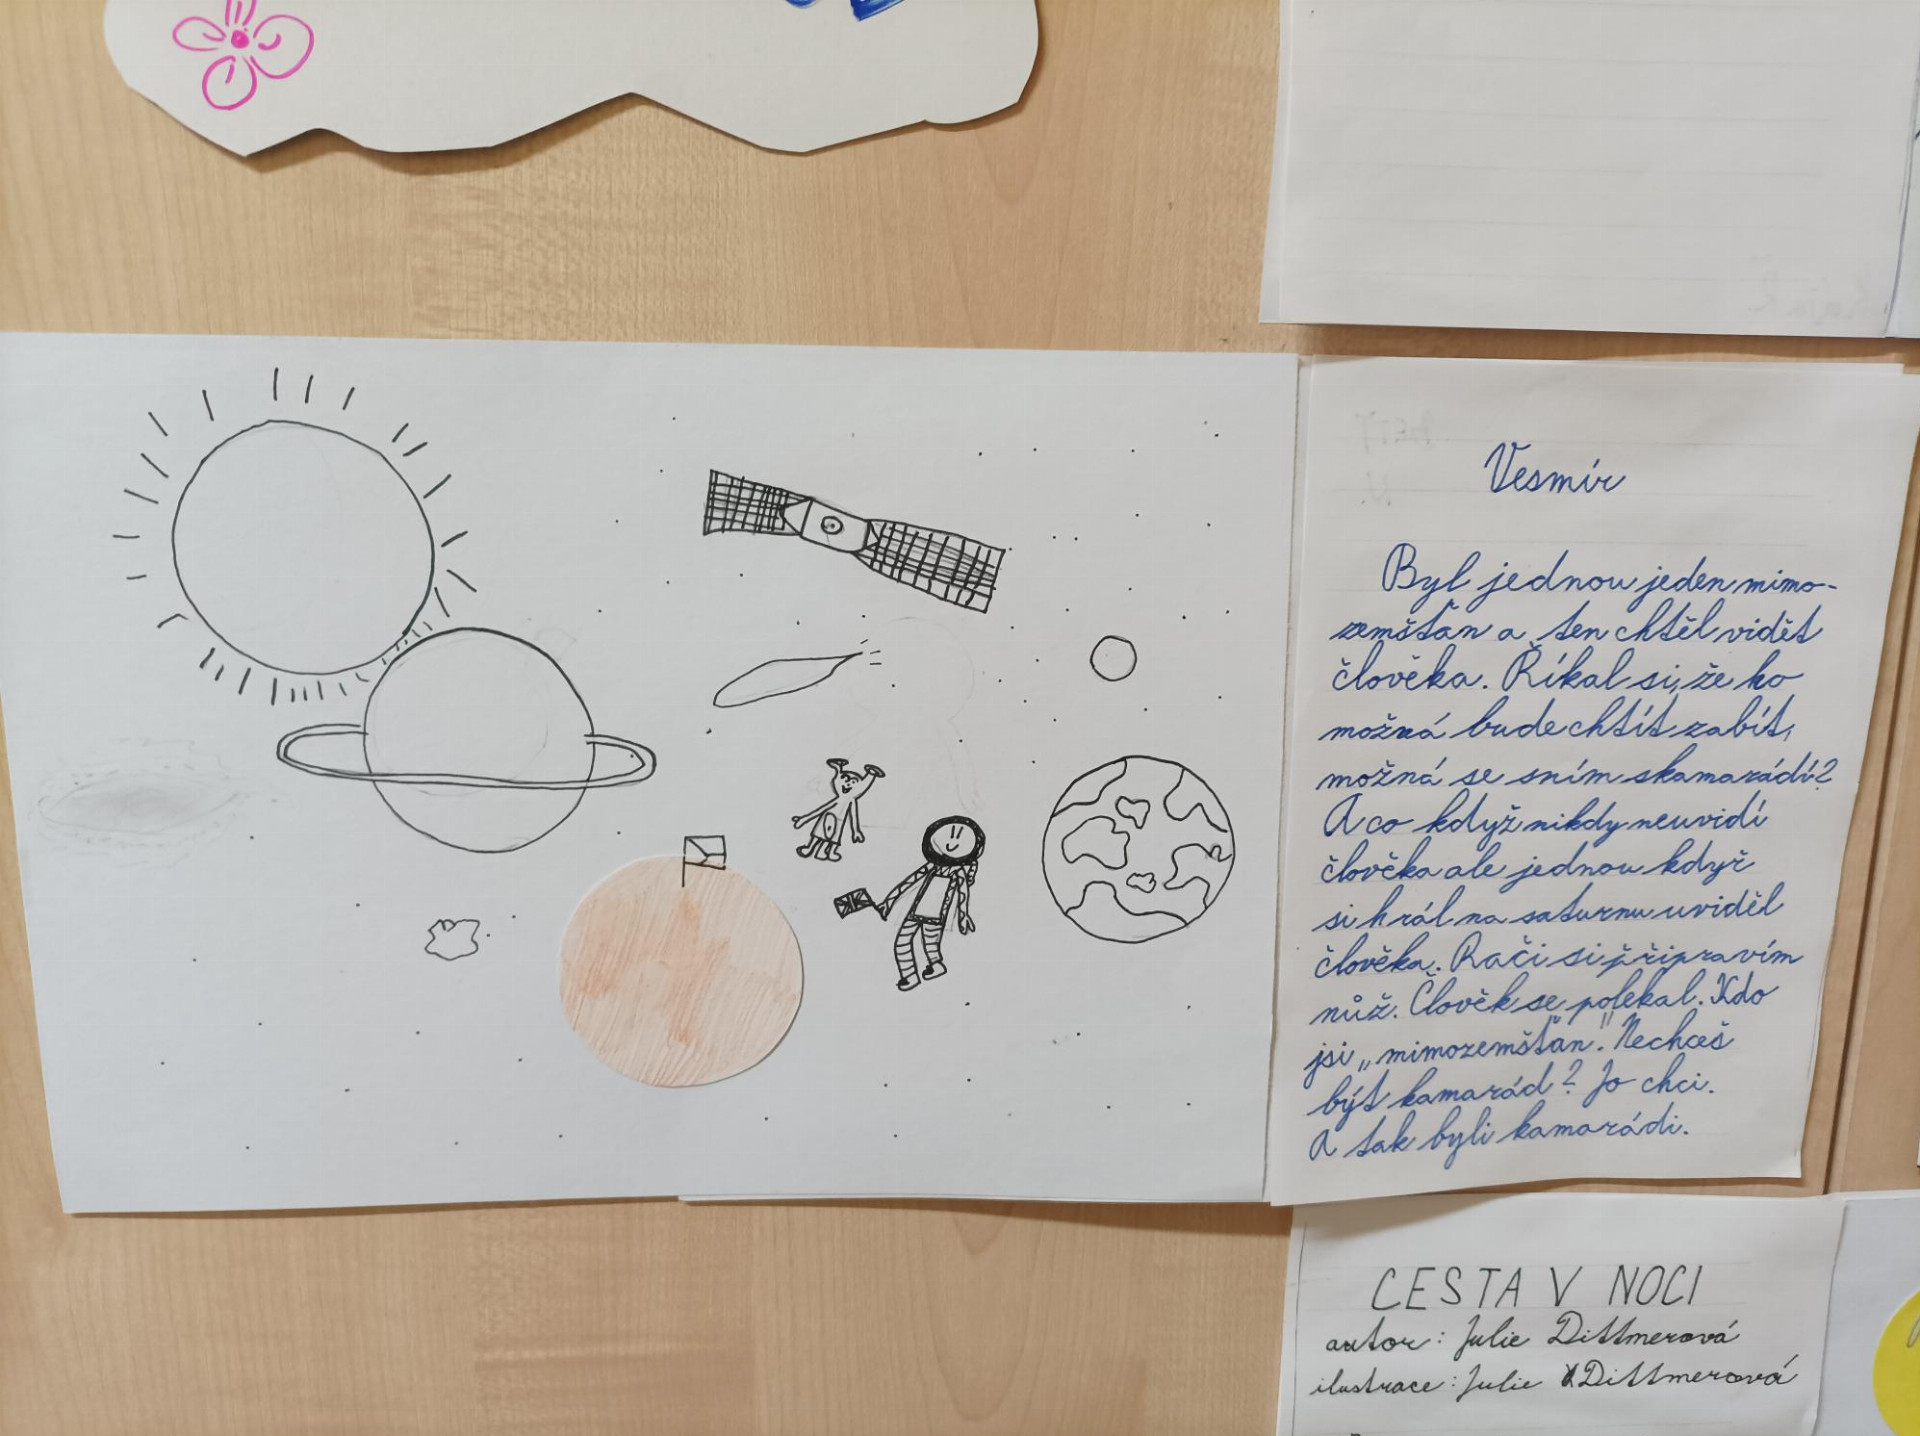 Vesmír
Byl jednou jeden mimo-
zemšťan a ten chtěl vidět
člověka. Říkal si, že ho
možná bude chtít zabít,
možná se sním skamarádí?
A co když nikdy neuvidí
člověka ale jednou kdyř
si hrál na saturnu uviděl
člověka. Rači si připravím
nůž. Člověk se polekal. Kdo
jsi „mimozemšťan." Nechceš
být kamarád? Jo chci.
A tak byli kamarádi.
CESTA V NOCI
autor: Julie Dittmerová
ilustrace: Julie Dittmerová